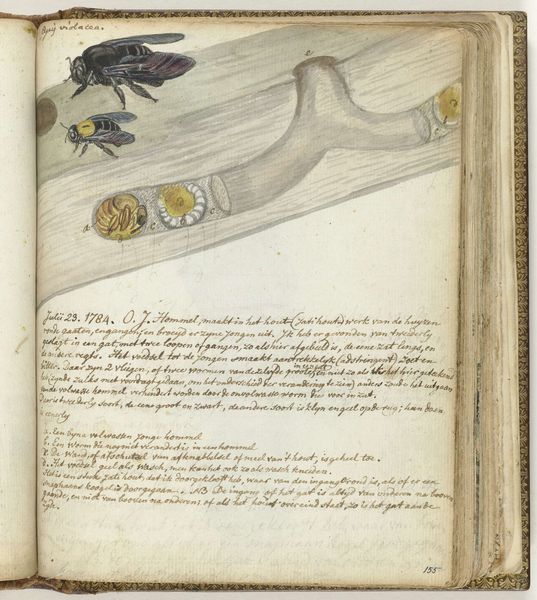 Apis violacea.
e
a
b
c
d
c
Julii 23. 1784. O. J. Hommel, maakt in het hout (jati hout) werk van de huyzen
ronde gaaten, en gangen, en broeyd er zyne jongen uit. Ik heb er gevonden van tweederly
in een gat, met twee loopen of gangen, zo als hier afgebeeld is, de eene zat links, en
de andere regts. Het voedzel tot de jongen smaakt aantrekkelyk (adstringent) zoet en
bitter. Daar zyn 2 vliegen, of twee wormen van dezelfde groote, niet zo als ik het hier getekend
in eene gat
heb, zulks met om het onderschid der verandering te zien) anders zoude het uitgaan
van de volwasse hommel verhindert worden door de onvolwasse worm die voor in zat.
Deer is tweederly soort, de eene groot en zwart, de andere soort is klyn en geel op de rug; haar doen
is eenerly
a. Een byna volwassen jonge hommel
b. Een worm die nog niet verandert is in een hommel
c. De of afschutzel van afknabbelsel of meel van 't hout, is geheel toe.
d. Het voedzel geel als wasch, men kan het ook zo als wasch kneeden.
Het is een stuk jati hout, dat ik doorgekloofd heb, waar van den ingang rond is, als of er een
koogel is doorgegaan. NB De ingang of het gat is altijd van onderen na boven
gaande, en niet van booven na onderen; of als het hout over eind staat, zo is het gat aan de
zyde.
155